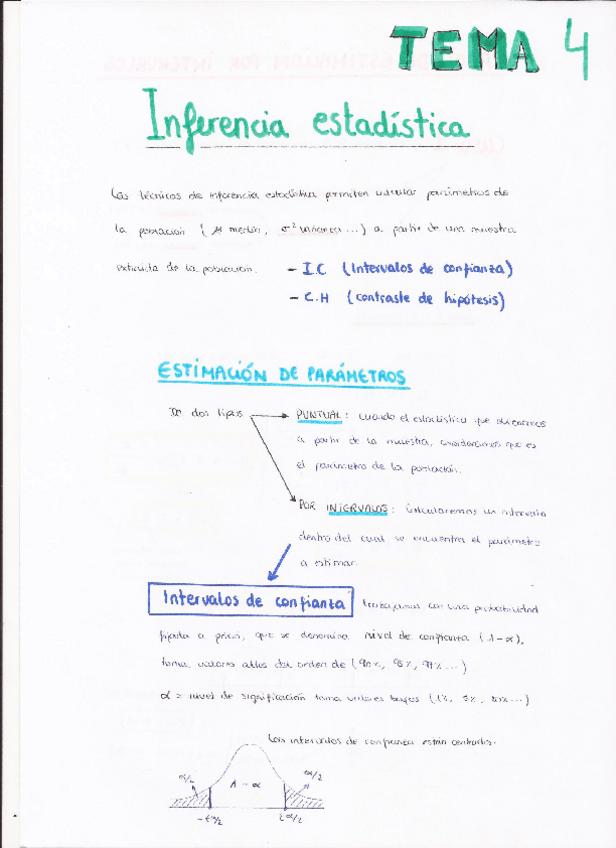 TEMA 4
Inferencia estadística
Las técnicas de inferencia estadística permiten calcular parámetros de
la población ( μ media, σ² varianza ...) a partir de una muestra
extraída de la población.
- I.C (Intervalos de confianza)
- C.H (contraste de hipótesis)
ESTIMACIÓN DE PARÁMETROS
De dos tipos
PUNTUAL: cuando el estadístico que obtenemos
a partir de la muestra, consideramos que es
el parámetro de la población.
POR INTERVALOS: Calcularemos un intervalo
dentro del cual se encuentra el parámetro
a estimar.
Intervalos de confianza trabajamos con una probabilidad
fijada a priori, que se denomina nivel de confianza (1-α),
toma valores altos del orden de (90%, 95%, 99% ...)
α = nivel de significación toma valores bajos (1%, 5%, ...)
Los intervalos de confianza están centrados.
α/2
1 - α
α/2
α/2